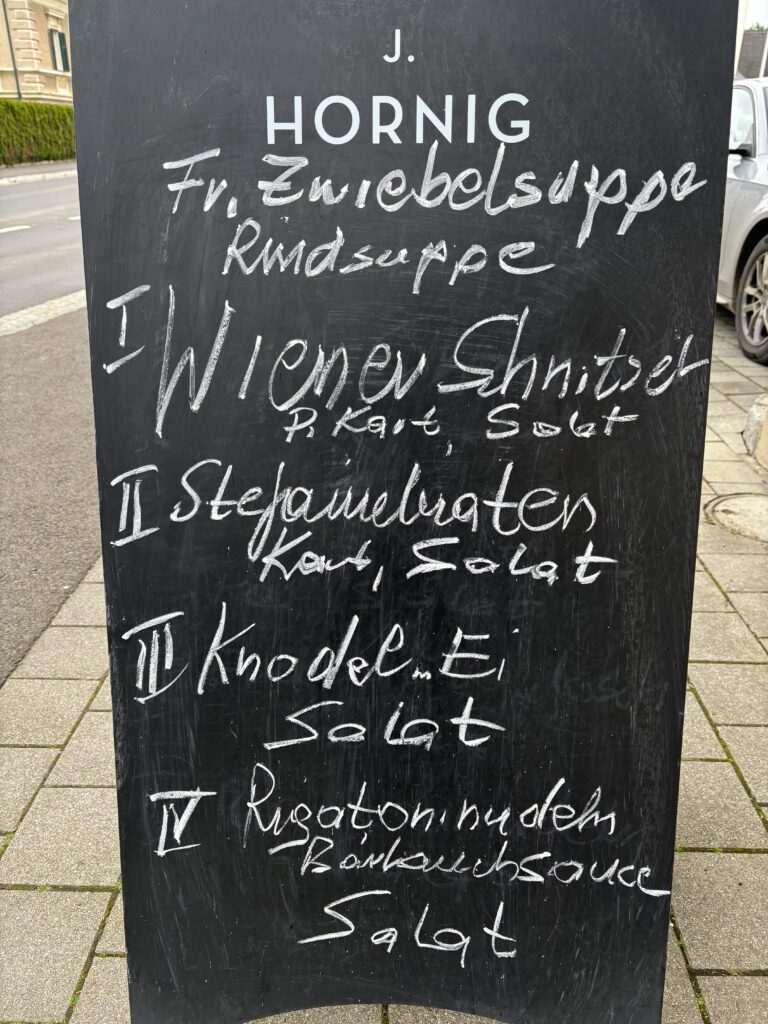 J.
HORNIG
Fr. Zwiebelsuppe
Rindsuppe
I Wiener Schnitzel
P. Kart, Salat
II Stefaniebraten
Kart, Salat
III Knödel m. Ei
Salat
IV Rigatoninudeln
Bärlauchsauce
Salat